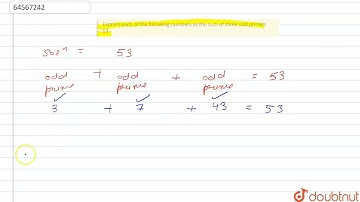 64567242
Express each of the following numbers as the sum of three odd primes
53
solⁿ = 53
odd prime + odd prime + odd prime = 53
3 + 7 + 43 = 53
doubtnut